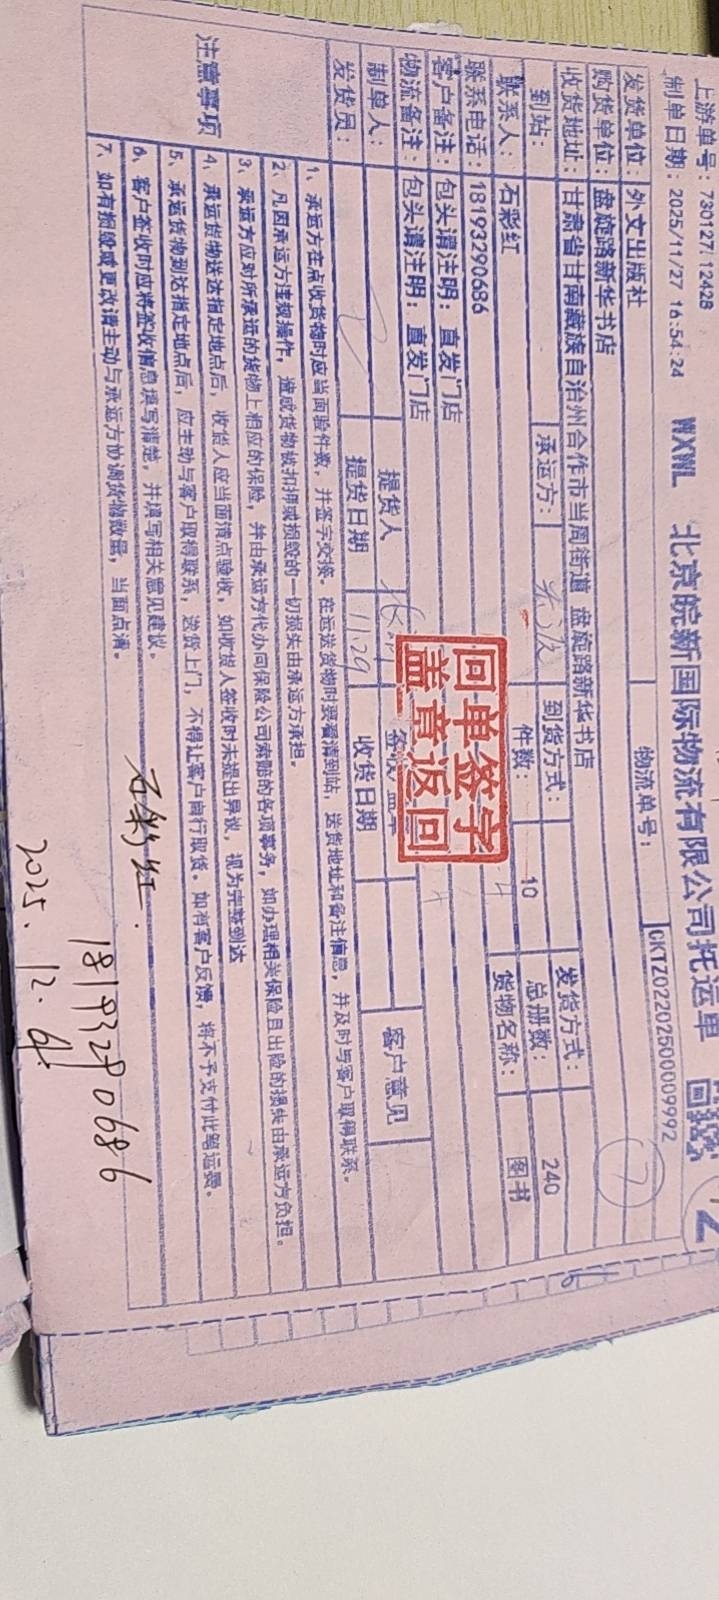 上游单号：730127/12428
WXWL 北京皖新国际物流有限公司托运单
制单日期：2025/11/27 16:54:24
物流单号：
CKTZ02202500009992
发货单位：外文出版社
购货单位：盘旋路新华书店
7
收货地址：甘肃省甘南藏族自治州合作市当周街道 盘旋路新华书店
到站：
承运方：
到货方式：
发货方式：
联系人：石彩红
件数：10
总册数：240
联系电话：18193290686
货物名称：图书
客户备注：包头请注明：直发门店
物流备注：包头请注明：直发门店
回单签字
盖章返回
制单人：
提货人
客户意见
发货员：
提货日期
11.29
收货日期
注意事项
1、承运方在点收货物时应当面验件数，并签字交接。在运送货物时要看清到站，送货地址和备注信息，并及时与客户取得联系。
2、凡因承运方违规操作，造成货物被扣押或损毁的一切损失由承运方承担。
3、承运方应对所承运的货物上相应的保险，并由承运方代办向保险公司索赔的各项事务，如办理相关保险且出险的损失由承运方负担。
4、承运货物送达指定地点后，收货人应当面清点验收，如收货人签收时未提出异议，视为完整到达
5、承运货物到达指定地点后，应主动与客户取得联系，送货上门，不得让客户自行取货。如有客户反馈，将不予支付此笔运费。
6、客户签收时应将签收信息填写清楚，并填写相关意见建议。
7、如有损毁或更改请主动与承运方协调货物数量，当面点清。
石彩红.
18193290686
2025.12.4